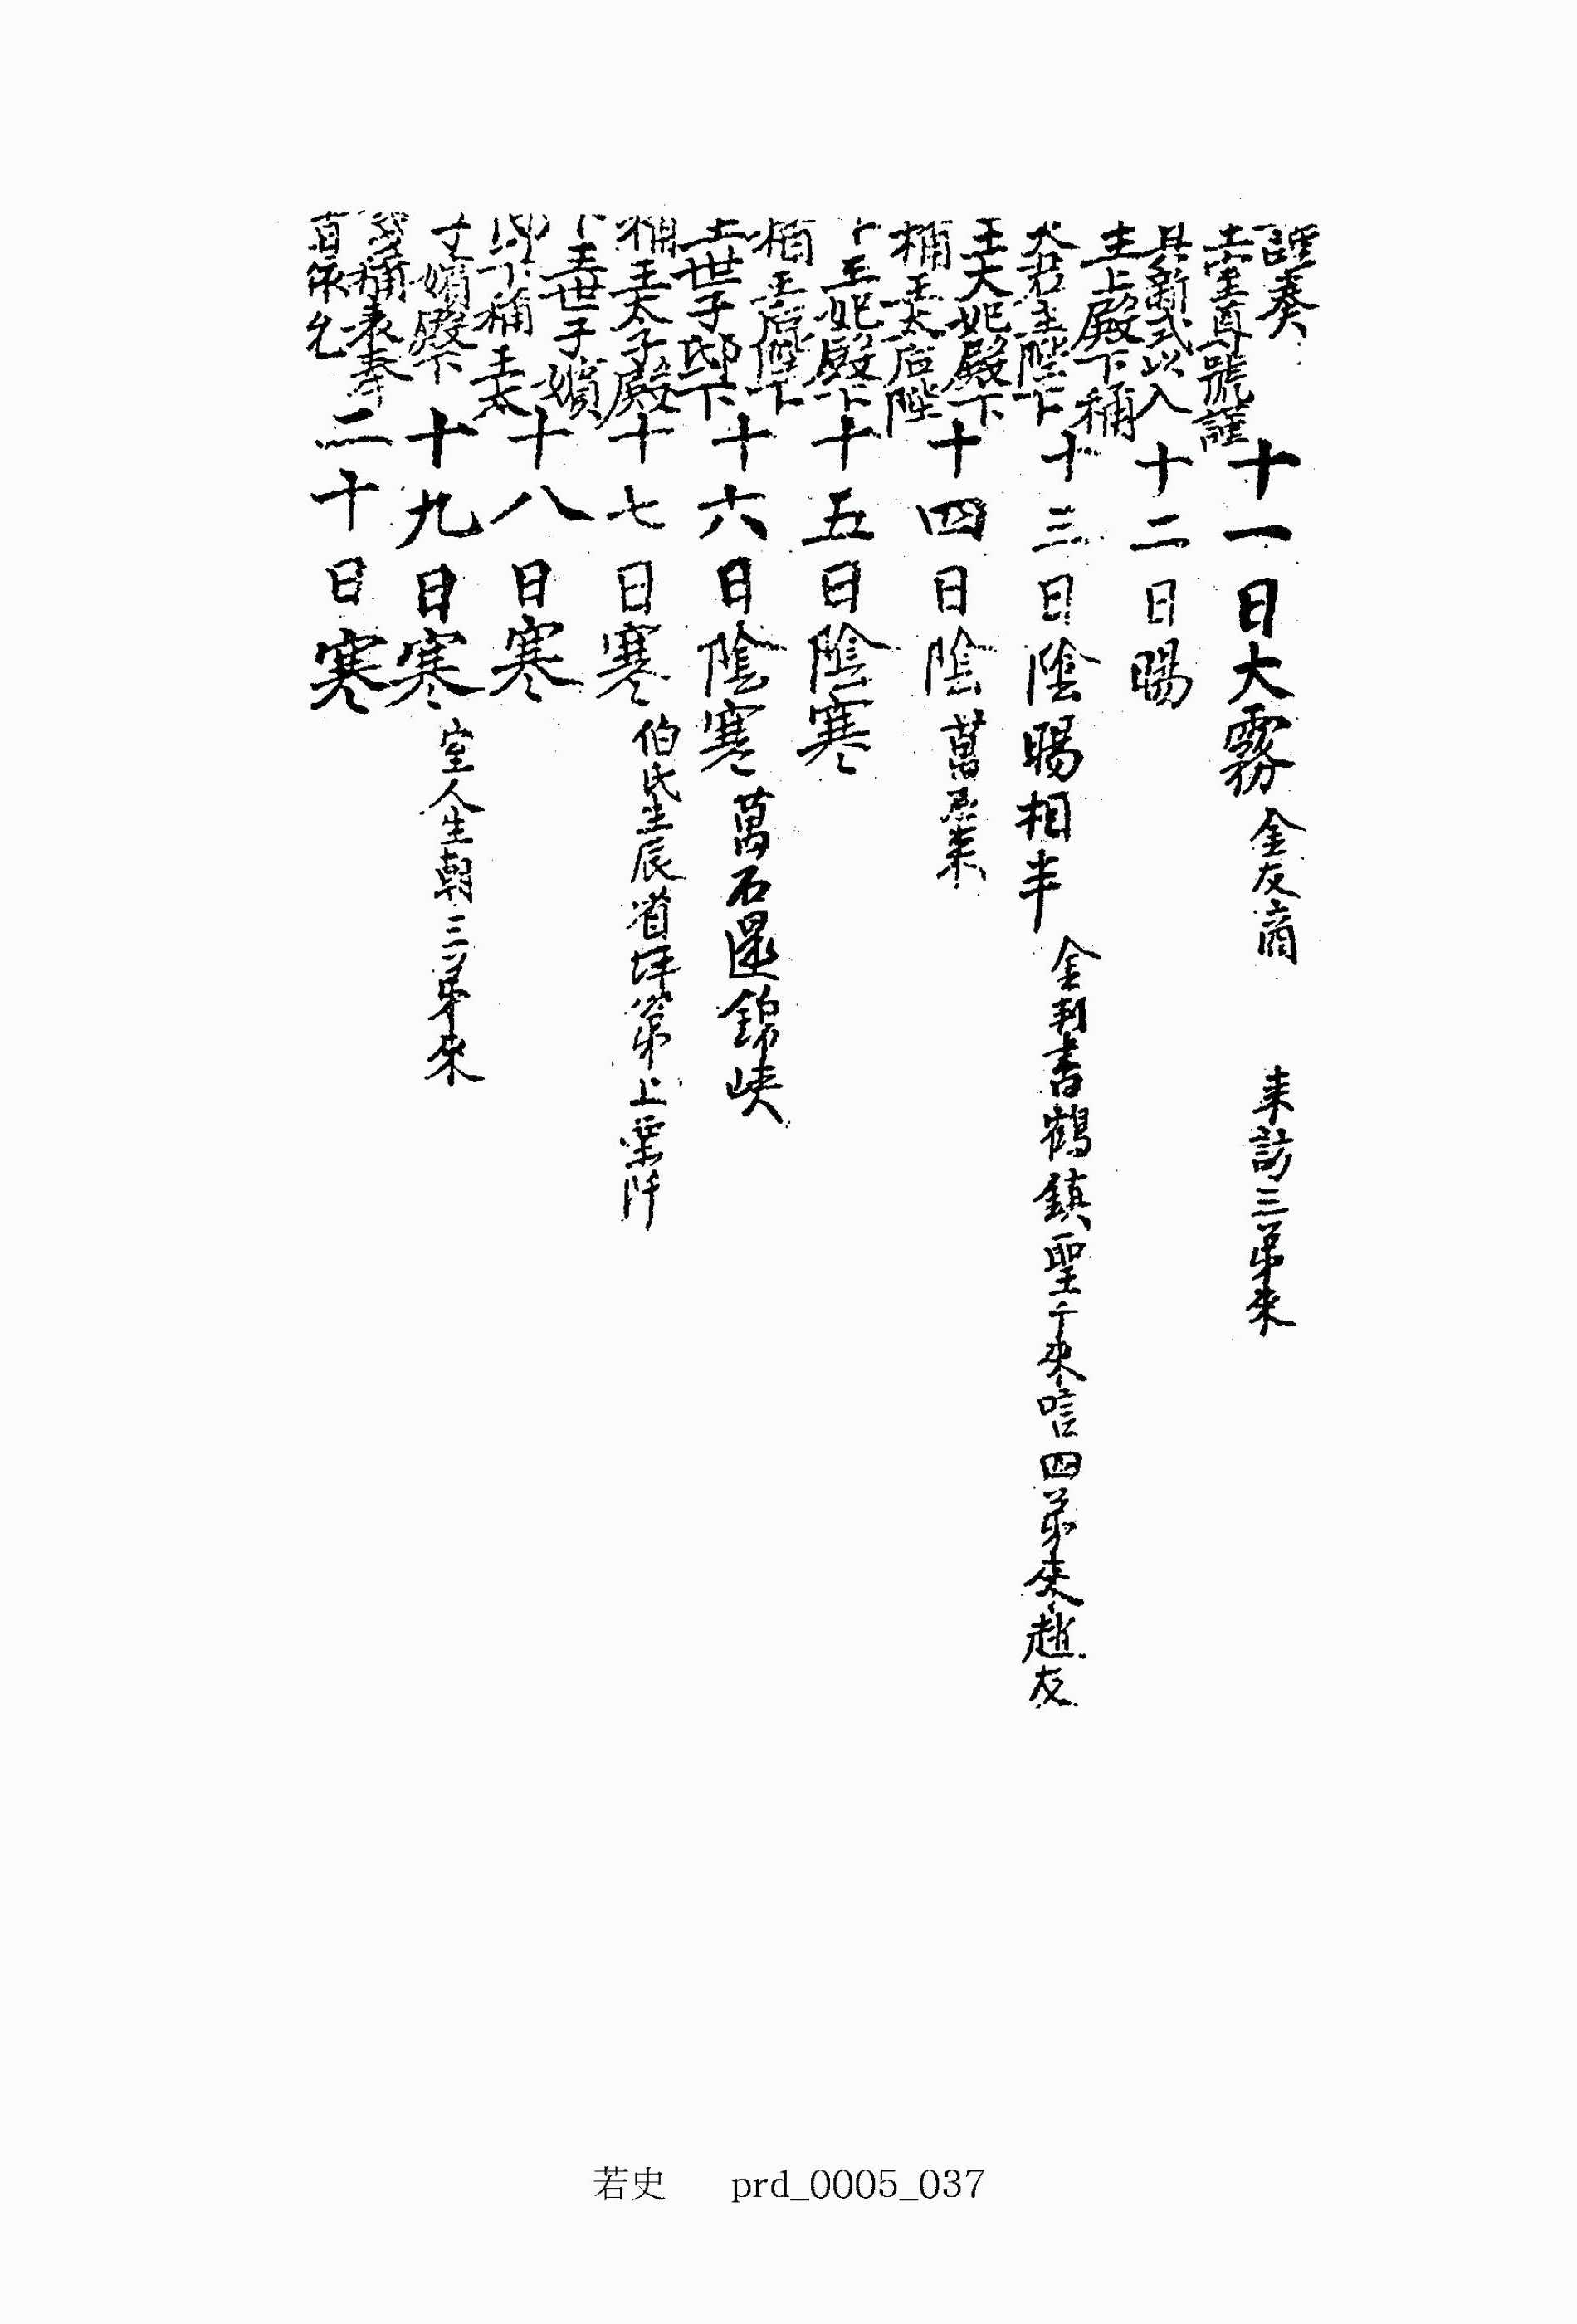 謹奏
王室尊號謹
具新式以入
主上殿下稱
大君主陛下
王大妃殿下
稱王太后陛
下王妃殿下
稱王后陛下
王世子邸下
稱王太子殿
下王世子嬪
邸下稱王太
子嬪殿下
箋稱表奉
旨依允
十一日大霧 金友商 来訪三弟來
十二日暘
十三日陰暘相半 金判書鶴鎮聖千來唁四弟來趙友
十四日陰 萬石来
十五日陰寒
十六日陰寒 萬石還錦峽
十七日寒 伯氏生辰省坪弟上栗阡
十八日寒
十九日寒 室人生朝三弟來
二十日寒
若史 prd_0005_037